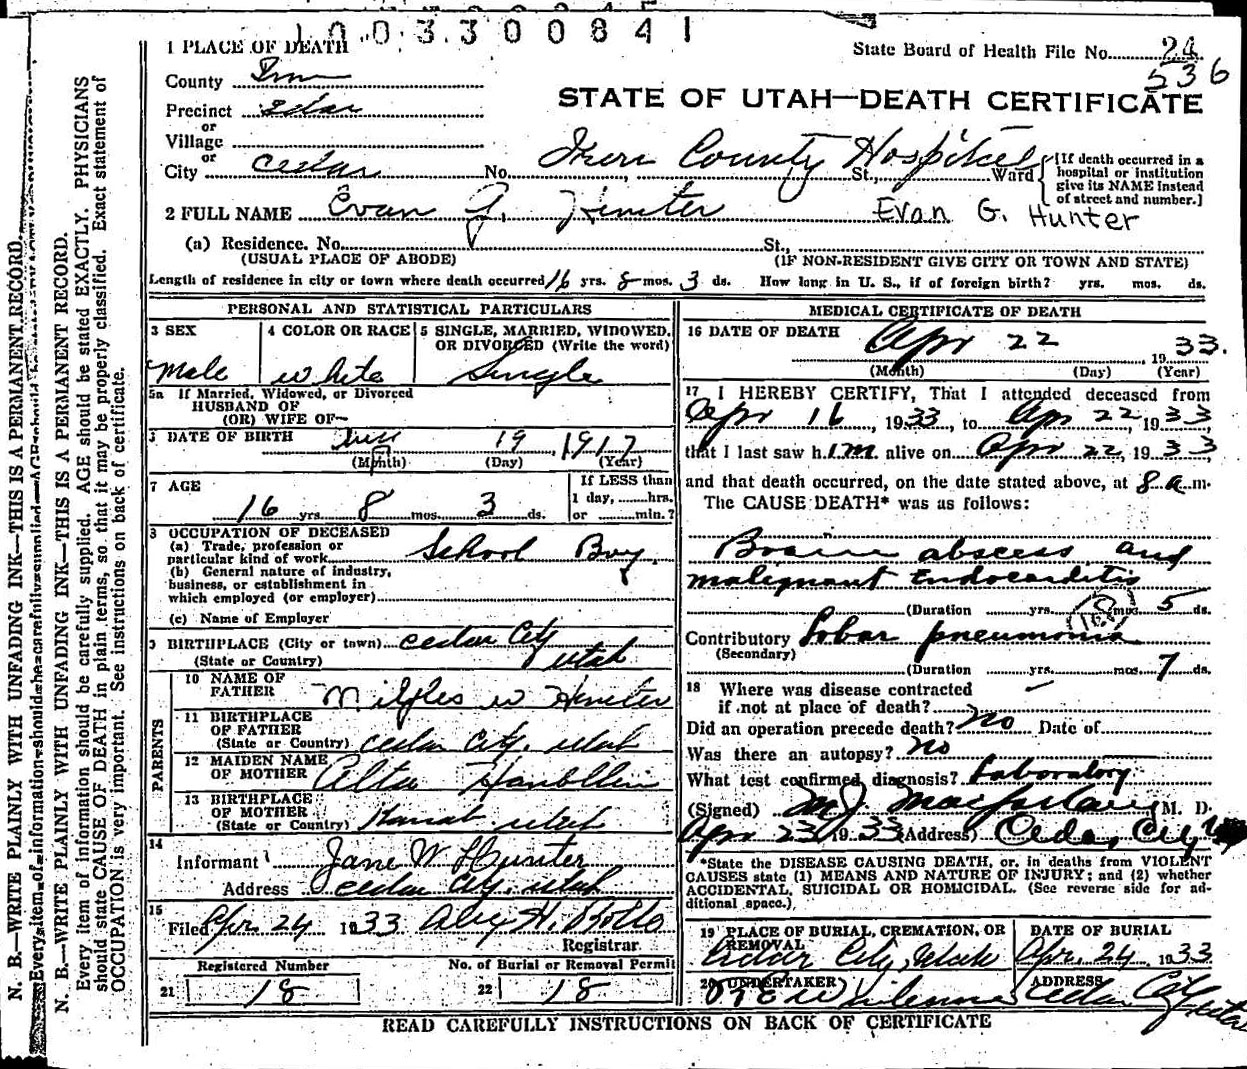 1003300841
1 PLACE OF DEATH
State Board of Health File No. 24
536
County Iron
Precinct Cedar
or
Village
or
City Cedar No. Iron County Hospital St., Ward
[If death occurred in a
hospital or institution
give its NAME instead
of street and number.]
STATE OF UTAH—DEATH CERTIFICATE
2 FULL NAME Evan G. Hunter Evan G. Hunter
(a) Residence. No. St.,
(USUAL PLACE OF ABODE) (IF NON-RESIDENT GIVE CITY OR TOWN AND STATE)
Length of residence in city or town where death occurred 16 yrs. 8 mos. 3 ds. How long in U. S., if of foreign birth? yrs. mos. ds.
PERSONAL AND STATISTICAL PARTICULARS
3 SEX
Male
4 COLOR OR RACE
White
5 SINGLE, MARRIED, WIDOWED,
OR DIVORCED (Write the word)
Single
5a If Married, Widowed, or Divorced
HUSBAND OF
(OR) WIFE OF—
DATE OF BIRTH 19, 1917
(Month) (Day) (Year)
7 AGE
16 yrs. 8 mos. 3 ds.
If LESS than
1 day, hrs.
or min.?
OCCUPATION OF DECEASED
(a) Trade, profession or
particular kind of work School Boy
(b) General nature of industry,
business, or establishment in
which employed (or employer)
(c) Name of Employer
BIRTHPLACE (City or town) Cedar City
(State or Country) Utah
PARENTS
10 NAME OF
FATHER W Hunter
11 BIRTHPLACE
OF FATHER
(State or Country) Cedar City, Utah
12 MAIDEN NAME
OF MOTHER Alta Hamblin
13 BIRTHPLACE
OF MOTHER
(State or Country) Kanab Utah
14
Informant Jane W Hunter
Address Cedar City, Utah
15
Filed Apr. 24 1933
Registrar
Registered Number
21 18
No. of Burial or Removal Permit
22 18
MEDICAL CERTIFICATE OF DEATH
16 DATE OF DEATH Apr 22 1933.
(Month) (Day) (Year)
17 I HEREBY CERTIFY, That I attended deceased from
Apr 16, 1933, to Apr 22, 1933
that I last saw h.im. alive on Apr 22, 1933,
and that death occurred, on the date stated above, at 8 a.m.
The CAUSE DEATH* was as follows:
abscess and
malignant Endocarditis
(Duration yrs. mos. 5 ds.
Contributory Lobar pneumonia
(Secondary)
(Duration yrs. mos. 7 ds.
18 Where was disease contracted
if not at place of death?
Did an operation precede death? no Date of
Was there an autopsy? no
What test confirmed diagnosis? Laboratory
(Signed) M.J. Macfarlane M. D.
Apr 23 1933 (Address) Cedar City
*State the DISEASE CAUSING DEATH, or, in deaths from VIOLENT
CAUSES state (1) MEANS AND NATURE OF INJURY; and (2) whether
ACCIDENTAL, SUICIDAL OR HOMICIDAL. (See reverse side for ad-
ditional space.)
19 PLACE OF BURIAL, CREMATION, OR
REMOVAL
Cedar City, Utah
DATE OF BURIAL
Apr. 24, 1933
20 UNDERTAKER
ADDRESS
Cedar City
READ CAREFULLY INSTRUCTIONS ON BACK OF CERTIFICATE
N. B.—WRITE PLAINLY WITH UNFADING INK—THIS IS A PERMANENT RECORD.
N. B.—WRITE PLAINLY WITH UNFADING INK—THIS IS A PERMANENT RECORD.
Every item of information should be carefully supplied. AGE should be stated EXACTLY. PHYSICIANS
should state CAUSE OF DEATH in plain terms, so that it may be properly classified. Exact statement of
OCCUPATION is very important. See instructions on back of certificate.